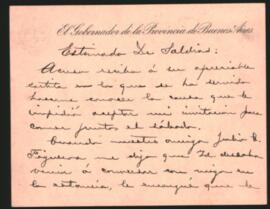 El Gobernador de la Provincia de Buenos Aires
Estimado Dr Saldías:
Acuso recibo á su apreciable
cartita en la que se ha servido
hacerme conocer la causa que le
impidió aceptar mi invitación para
comer juntos el sábado.
Cuando nuestro amigo Julio
Figueroa me dijo que Vd. deseaba
venir á conversar con migo en
la estancia, le encargué que le